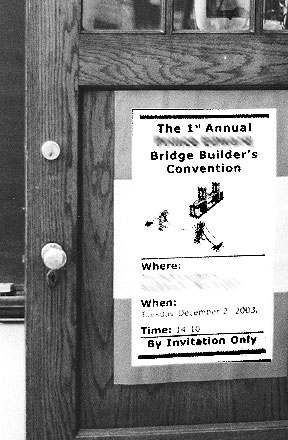 The 1st Annual
Bridge Builder's
Convention
Where:
When:
Tuesday December 2, 2003.
Time: 14:10
By Invitation Only